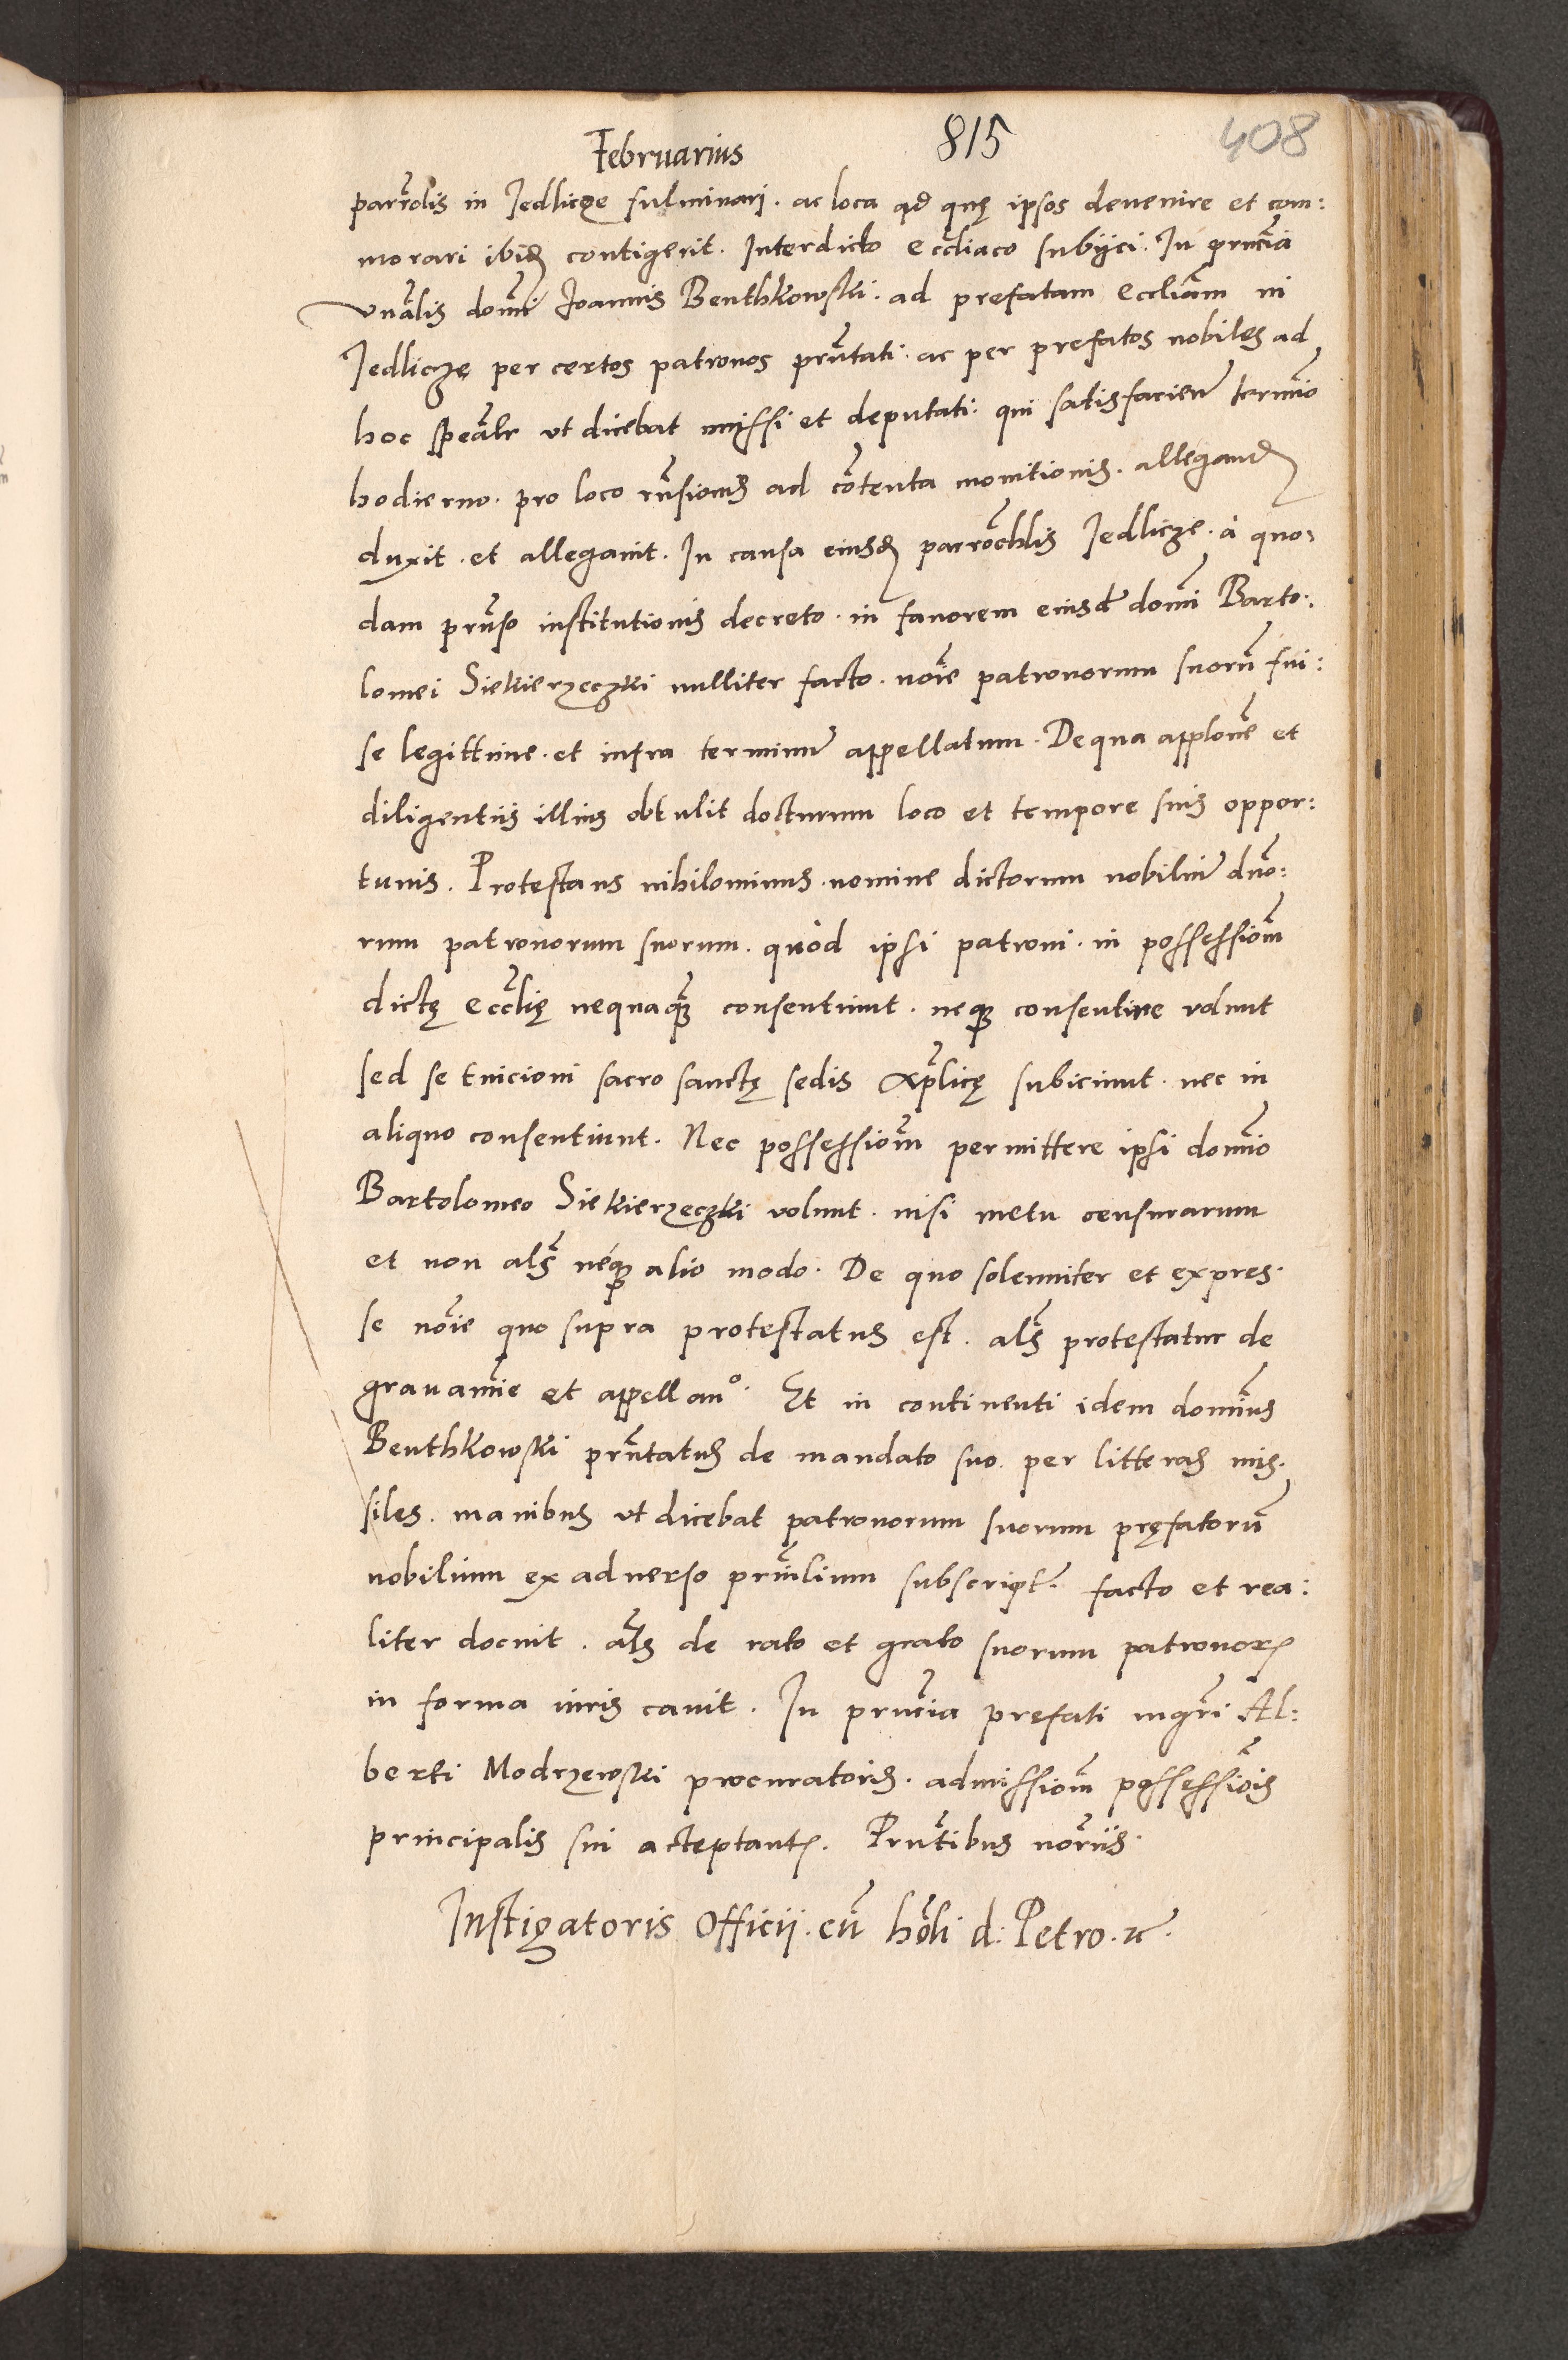 Februarius 815 408
parrõlis in Jedlicze fulminari. ac loca ad quę ipsos devenire et com:
morari ibid contigerit. Interdicto ecclïaco subijci. In prñcia
vnãlis domi Joannis Benthkowski. ad prefatam Eccliam in
Jedlicze per certos patronos prñtati. ac per prefatos nobiles ad
hoc speãlr vt dicebat missi et deputati. qui satisfacien termio
hodierno. pro loco rñsionis ad cõtenta monitionis. allegand
duxit. et allegavit. In causa eiusd parrõchlis Jedlicze. à quo:
dam prñso institutionis decreto. in favorem eiusd domi Barto:
lomei Siekierzeczki nulliter facto. noie patronorum suorũ fui:
se legittime. et infra terminũ appellatum. De qua applone et
diligentiis illius obtulit docturum loco et tempore suis oppor:
tunis. Protestans nihilominus. nomine dictorum nobiliũ duo:
rum patronorum suorum. quòd ipsi patroni. in possessiom
dictę ecclię nequaq̃ consentiunt. neq consentire volunt
sed se tuicioni sacro sanctę sedis Aplicę subiciunt. nec in
aliquo consentiunt. Nec possessiom permittere ipsi domio
Bartolomeo Siekierzeczki volunt. nisi metu censurarum
et non als neq alio modo. De quo solenniter et expres.
se noie quo supra protestatus est. als protestatur de
gravamie et appellanᵒ. Et in continenti idem domius
Benthkowski prñtatus de mandato suo per litteras mis.
siles. manibus vt dicebat patronorum suorum pręfatorũ
nobilium ex adverso prinlium subscript. facto et rea:
liter docuit. als de rato et grato suorum patronor
in forma iuris cavit. In prñcia pręfati mgri Al:
berti Modrzewski procuratoris. admissiom possessiois
principalis sui acceptant. Prñtibus noriis.
Instigatoris Officii. cũ hõli d: Petro. rc.